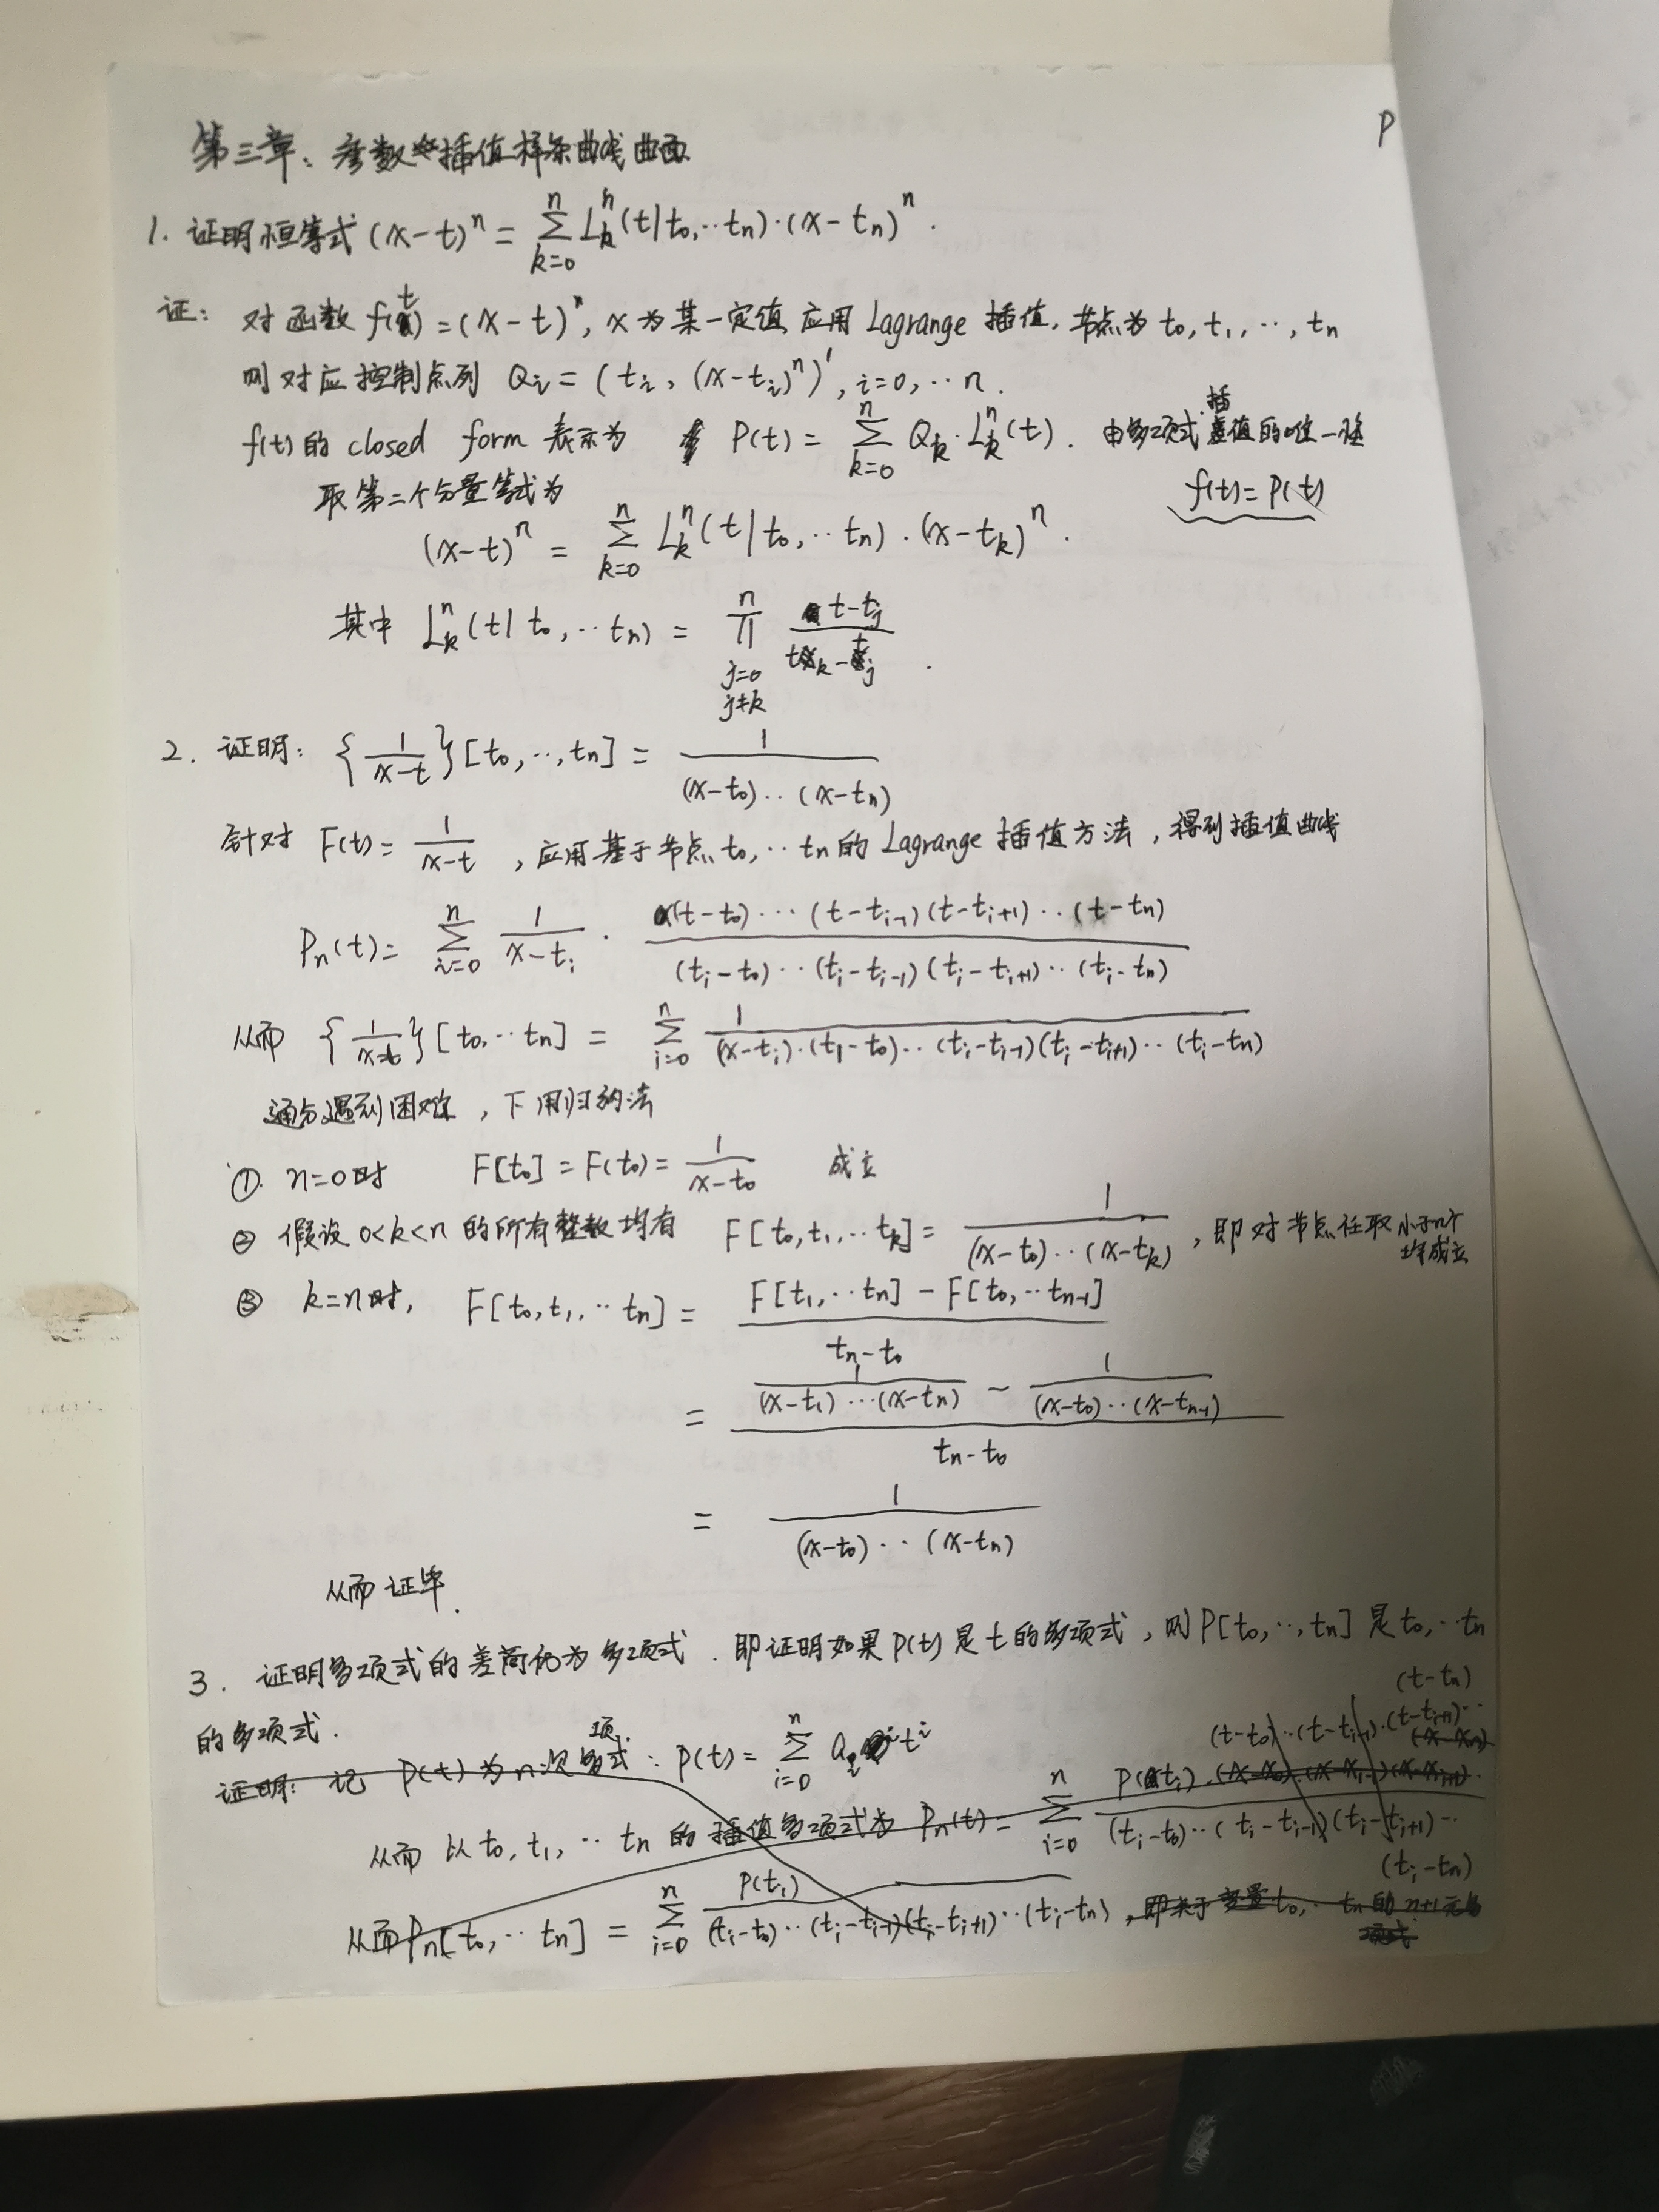 P
第三章：参数插值样条曲线曲面
1. 证明恒等式 (x-t)^n = \sum_{k=0}^{n} L_k^n(t|t_0,..t_n)·(x-t_n)^n.
证： 对函数 f(t)=(x-t)^n, x为某一定值, 应用 Lagrange 插值, 节点为 t_0, t_1, .., t_n
则对应控制点列 Q_i = (t_i, (x-t_i)^n)', i=0, ..n.
f(t)的 closed form 表示为 P(t) = \sum_{k=0}^{n} Q_k·L_k^n(t). 由多项式插值的唯一性
取第二个分量等式为 f(t)=P(t)
(x-t)^n = \sum_{k=0}^{n} L_k^n(t|t_0,..t_n)·(x-t_k)^n.
其中 L_k^n(t|t_0,..t_n) = \prod_{j=0, j≠k}^{n} \frac{t-t_j}{t_k-t_j}.
2. 证明: {\frac{1}{x-t}}[t_0,..,t_n] = \frac{1}{(x-t_0)..(x-t_n)}
针对 F(t)=\frac{1}{x-t}, 应用基于节点 t_0,..t_n 的 Lagrange 插值方法, 得到插值曲线
P_n(t) = \sum_{i=0}^{n} \frac{1}{x-t_i} · \frac{(t-t_0)···(t-t_{i-1})(t-t_{i+1})··(t-t_n)}{(t_i-t_0)··(t_i-t_{i-1})(t_i-t_{i+1})··(t_i-t_n)}
从而 {\frac{1}{x-t}}[t_0,..t_n] = \sum_{i=0}^{n} \frac{1}{(x-t_i)·(t_i-t_0)··(t_i-t_{i-1})(t_i-t_{i+1})··(t_i-t_n)}
通分遇到困难, 下用归纳法
① n=0时 F[t_0]=F(t_0)=\frac{1}{x-t_0} 成立
② 假设 0<k<n 的所有整数均有 F[t_0,t_1,..t_k]=\frac{1}{(x-t_0)..(x-t_k)}, 即对节点任取小于n个均成立
③ k=n时, F[t_0,t_1,..t_n] = \frac{F[t_1,..t_n]-F[t_0,..t_{n-1}]}{t_n-t_0}
= \frac{\frac{1}{(x-t_1)···(x-t_n)} - \frac{1}{(x-t_0)··(x-t_{n-1})}}{t_n-t_0}
= \frac{1}{(x-t_0)··(x-t_n)}
从而证毕.
3. 证明多项式的差商仍为多项式. 即证明如果P(t)是t的多项式, 则P[t_0,..,t_n]是t_0,..t_n
的多项式.
证明: 记 P(t) 为n次多项式: P(t)=\sum_{i=0}^{n} a_i t^i
从而以 t_0,t_1,..t_n 的插值多项式为 P_n(t)=\sum_{i=0}^{n} \frac{P(t_i)·(t-t_0)··(t-t_{i-1})·(t-t_{i+1})··(t-t_n)}{(t_i-t_0)··(t_i-t_{i-1})(t_i-t_{i+1})··(t_i-t_n)}
从而P_n[t_0,..t_n] = \sum_{i=0}^{n} \frac{P(t_i)}{(t_i-t_0)··(t_i-t_{i-1})(t_i-t_{i+1})··(t_i-t_n)}, 即关于变量t_0,..t_n的n+1元多项式